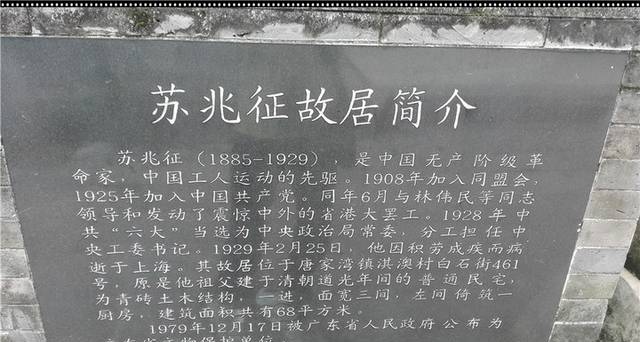 苏兆征故居简介
苏兆征（1885-1929），是中国无产阶级革
命家，中国工人运动的先驱。1908年加入同盟会，
1925年加入中国共产党。同年6月与林伟民等同志
领导和发动了震惊中外的省港大罢工。1928年中
共“六大”当选为中央政治局常委，分工担任中
央工委书记。1929年2月25日，他因积劳成疾而病
逝于上海。其故居位于唐家湾镇淇澳村白石街461
号，原是他祖父建于清朝道光年间的普通民宅，
为青砖土木结构，一进，面宽三间，左间倚筑一
厨房，建筑面积共有68平方米。
1979年12月17日被广东省人民政府公布为
广东省文物保护单位。